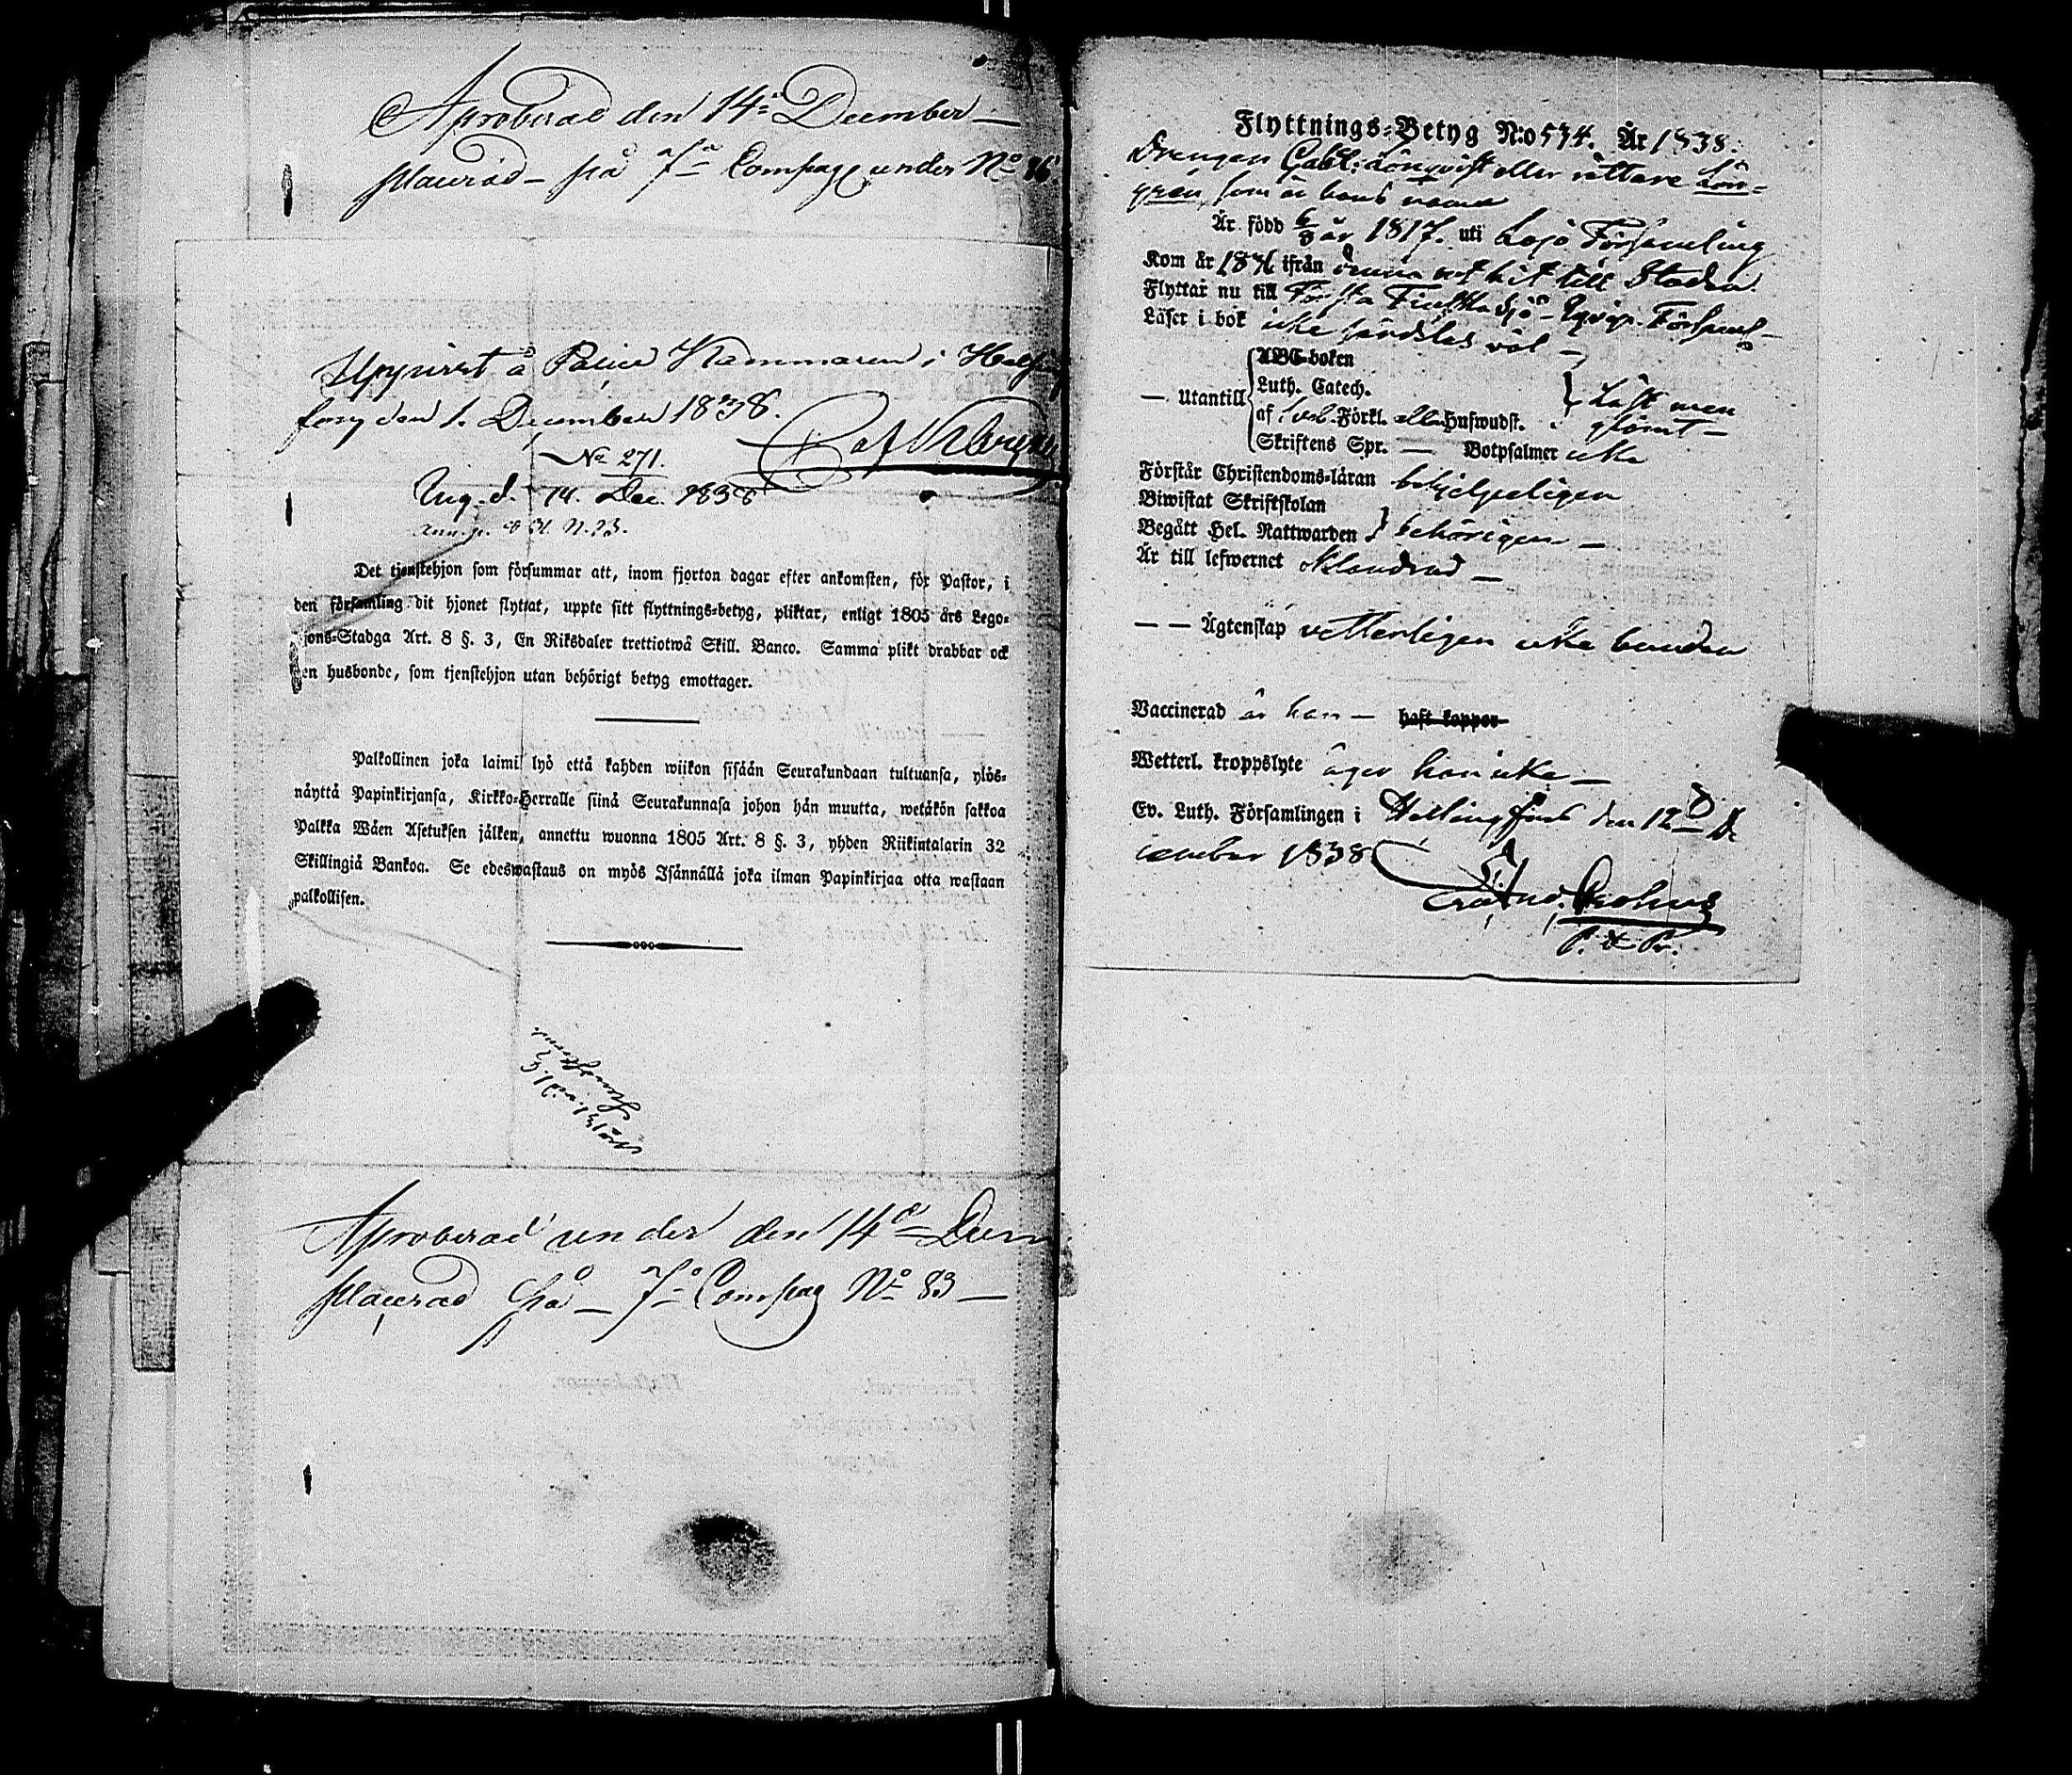 Aproberad den 14de December
placerad – på 7de Compag under No 86
Uppvist å Police Kammaren i Helsing
fors den 1. December 1838.
No 271.
Ing. d. 14. Dec. 1838
Det tjenstehjon som försummar att, inom fjorton dagar efter ankomsten, för Pastor, i
den församling dit hjonet flyttat, uppte sitt flyttnings=betyg, pliktar, enligt 1805 års Lego=
jons=Stadga Art. 8 §. 3, En Riksdaler trettiotwå Skill. Banco. Samma plikt drabbar ock
en husbonde, som tjenstehjon utan behörigt betyg emottager.
Palkollinen joka laimi lyö että kahden wiikon sisään Seurakundaan tultuansa, ylös=
näyttä Papinkirjansa, Kirkko=Herralle siinä Seurakunnasa johon hän muutta, wetäkön sakkoa
Palkka Wäen Asetuksen jälken, annettu wuonna 1805 Art. 8 §. 3, yhden Riikintalarin 32
Skillingiä Bankoa. Se edeswastaus on myös Isännällä joka ilman Papinkirjaa otta wastaan
palkollisen.
Aproberad under den 14de Decem
placerad på – 7de Compag No 83 –
Flyttnings=Betyg N:o 534. År 1838.
Drengen Gabl: Lönqvist eller rättare Lön=
gren, som är hans namn
Är född 6/8 år 1817. uti Lojo Församling
Kom år 1836 ifrån denna ort hit till Staden.
Flyttar nu till Första Finska Sjö-Eqvip. Församl–
Läser i bok icke särdeles väl –
— Utantill
ABC=boken
Luth. Catech.
af Sveb. Förkl. eller Huswudst.
Lässt men
glömt –
Skriftens Spr. — Botpsalmer icke
Förstår Christendoms=läran behjelpeligen
Biwistat Skriftskolan
Begått Hel. Nattwarden } behörigen –
Är till lefwernet oklandrad –
— — Ägtenskap vetterligen icke bunden
Vaccinerad är han – haft koppor
Wetterl. kroppslyte äger han icke –
Ev. Luth. Församlingen i Helsingfors den 12de De
cember 1838
P. &amp; Pr.